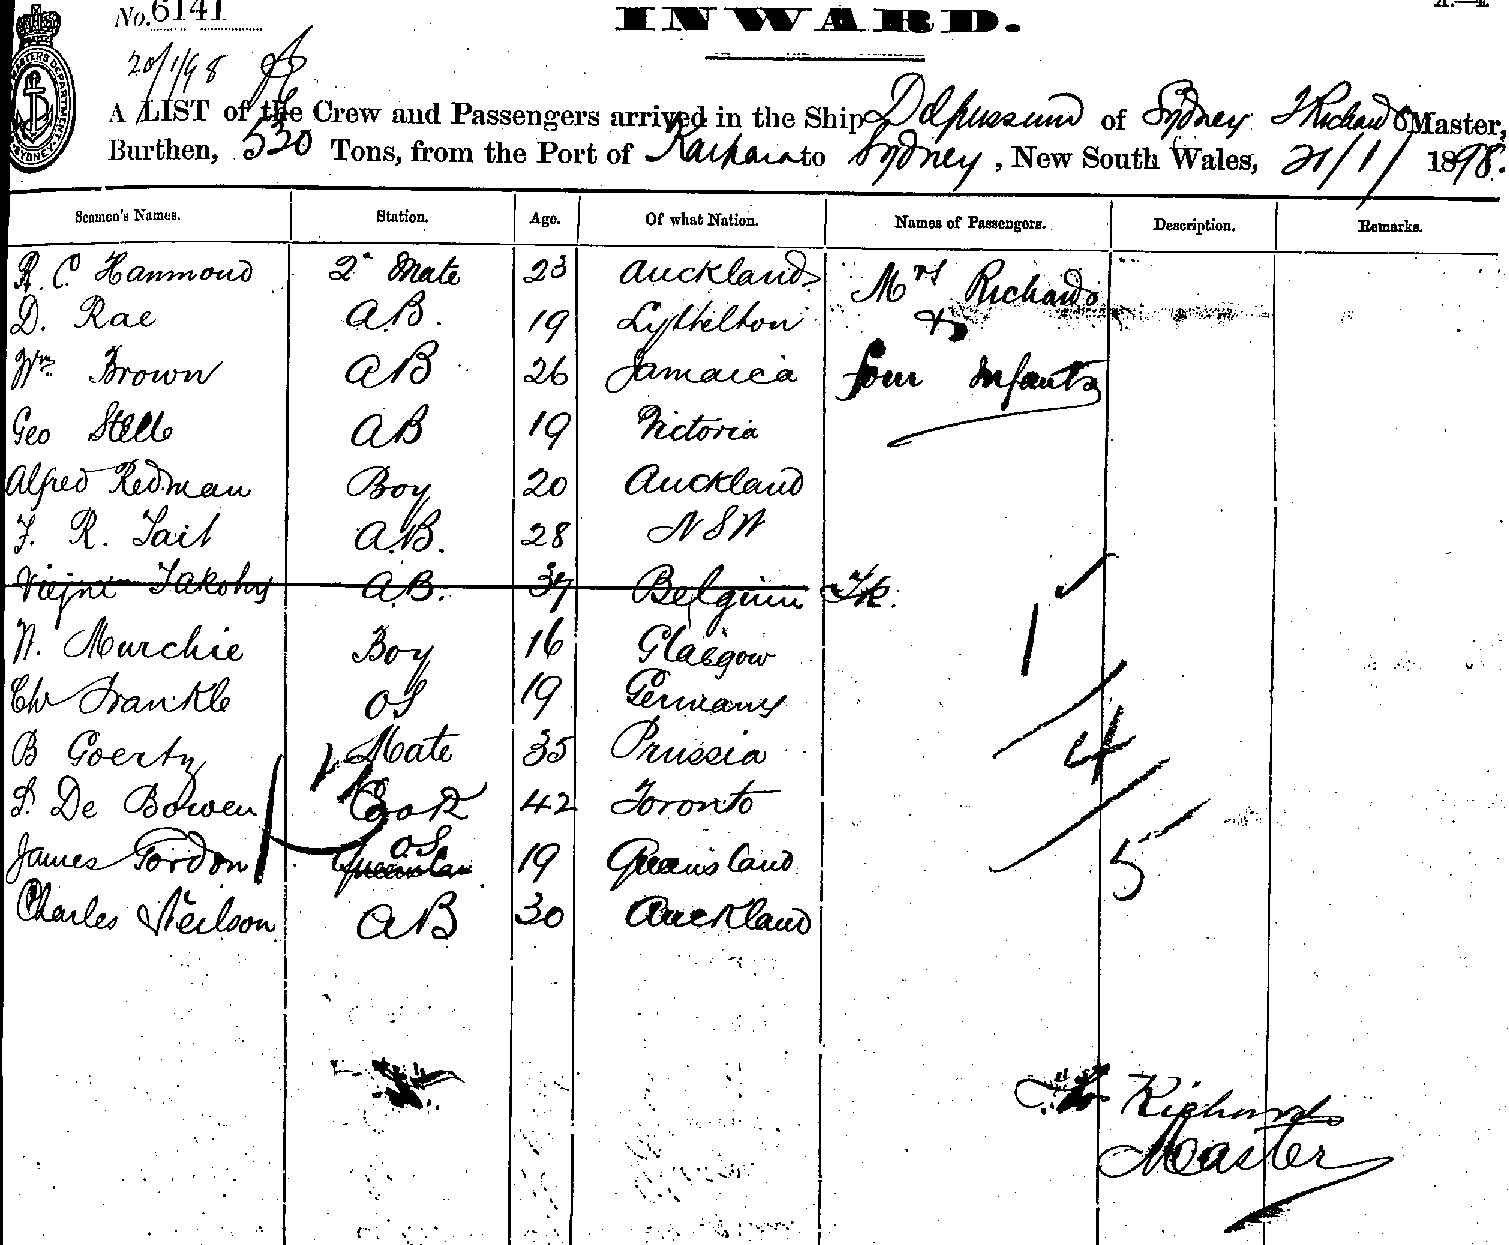 No. 6141
INWARD.
20/1/98
A LIST of the Crew and Passengers arrived in the Ship of Sydney Richards Master,
Burthen, 530 Tons, from the Port of Kaipara to Sydney, New South Wales, 21/1/ 1898.
Seamen's Names. Station. Age. Of what Nation. Names of Passengers. Description. Remarks.
R. C. Hammond 2d Mate 23 Auckland Mrs Richards
D. Rae A.B. 19 Lyttelton &
Wm Brown AB 26 Jamaica four Infants
Geo AB 19 Victoria
Alfred Redman Boy 20 Auckland
F. R. Tait A.B. 28 NSW
A.B. 37 Belgium
N. Murchie Boy 16 Glasgow 1
Chr Frankle OS 19 Germany
B Goertz Mate 35 Prussia 4
S. De Bowen Cook 42 Toronto
James Gordon OS 19 Queensland 5
Queenslan
Charles Neilson AB 30 Auckland
Richards
Master